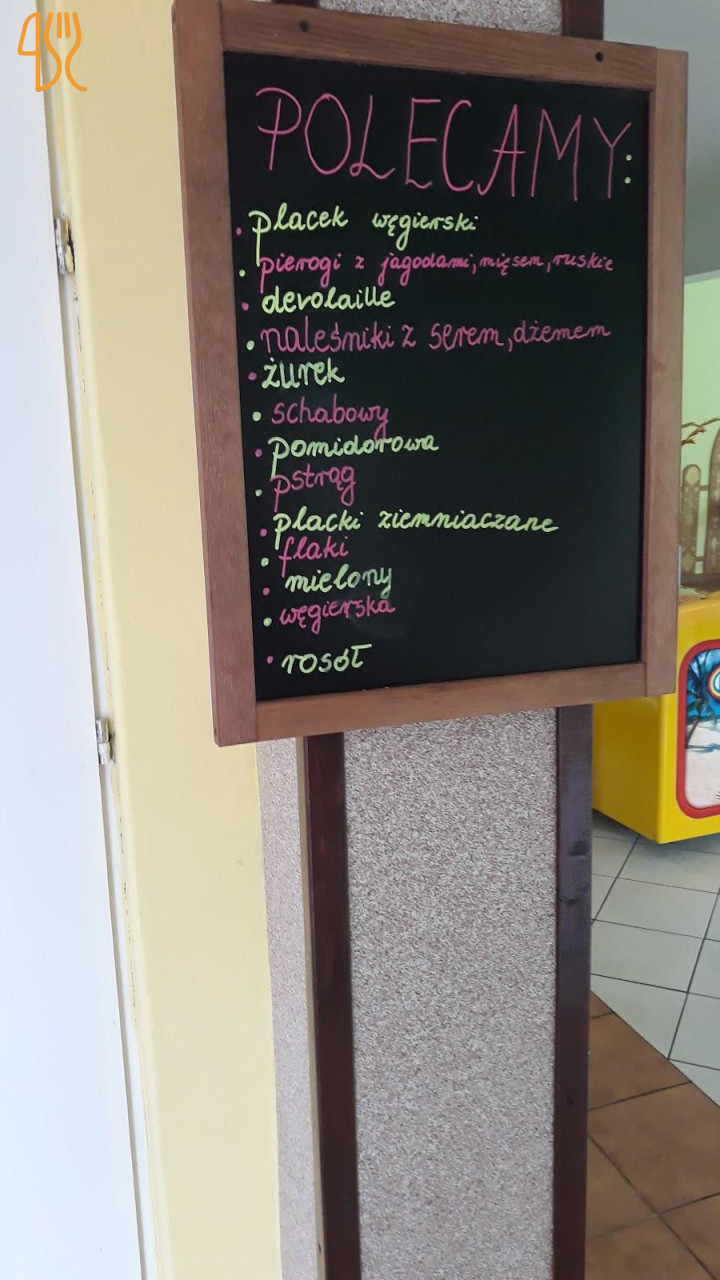 POLECAMY:
• placek węgierski
• pierogi z jagodami, mięsem, ruskie
• devolaille
• naleśniki z serem, dżemem
• żurek
• schabowy
• pomidorowa
• pstrąg
• placki ziemniaczane
• flaki
• mielony
• węgierska
• rosół